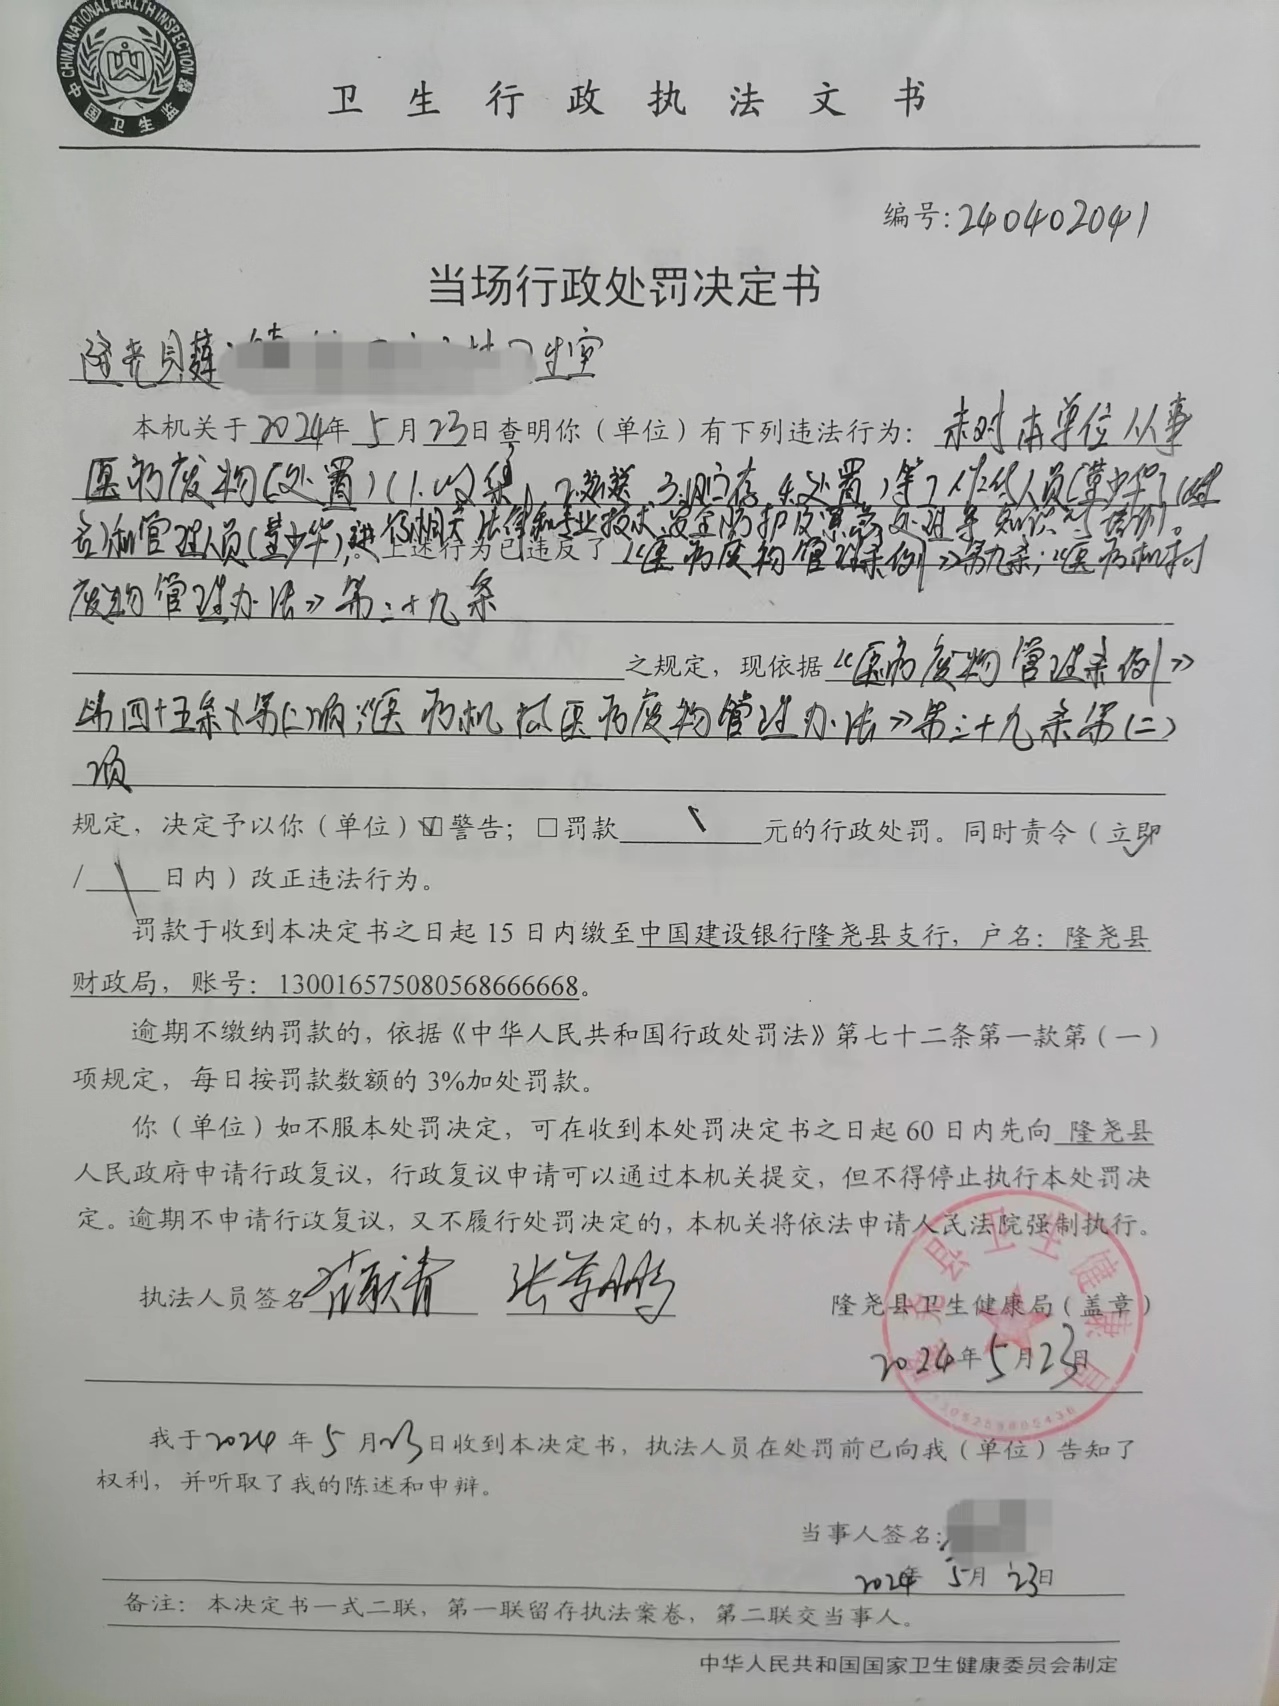 CHINA NATIONAL HEALTH INSPECTION
中国卫生监督
卫生行政执法文书
编号:240402041
当场行政处罚决定书
隆尧县 卫生室
本机关于2024年5月23日查明你（单位）有下列违法行为：未对本单位从事
医疗废物(处置)(1.收集，2.运送，3.贮存，4.处置)等工作人员(董少华)
和管理人员(董少华)，进行相关法律和专业技术、安全防护及紧急处理等知识的培训。
上述行为已违反了《医疗废物管理条例》第九条；《医疗机构
废物管理办法》第三十九条
之规定，现依据《医疗废物管理条例》
第四十五条 第(二)项；《医疗机构医疗废物管理办法》第三十九条第(二)
项
规定，决定予以你（单位）☑警告；□罚款 \ 元的行政处罚。同时责令（立即✓
/ \ 日内）改正违法行为。
罚款于收到本决定书之日起15日内缴至中国建设银行隆尧县支行，户名：隆尧县
财政局，账号：13001657508056866­6668。
逾期不缴纳罚款的，依据《中华人民共和国行政处罚法》第七十二条第一款第（一）
项规定，每日按罚款数额的3%加处罚款。
你（单位）如不服本处罚决定，可在收到本处罚决定书之日起60日内先向 隆尧县
人民政府申请行政复议，行政复议申请可以通过本机关提交，但不得停止执行本处罚决
定。逾期不申请行政复议，又不履行处罚决定的，本机关将依法申请人民法院强制执行。
执法人员签名
隆尧县卫生健康局（盖章）
隆尧县卫生健康局
2024年5月23日
我于2024年5月23日收到本决定书，执法人员在处罚前已向我（单位）告知了
权利，并听取了我的陈述和申辩。
当事人签名:
2024年5月23日
备注：本决定书一式二联，第一联留存执法案卷，第二联交当事人。
中华人民共和国国家卫生健康委员会制定